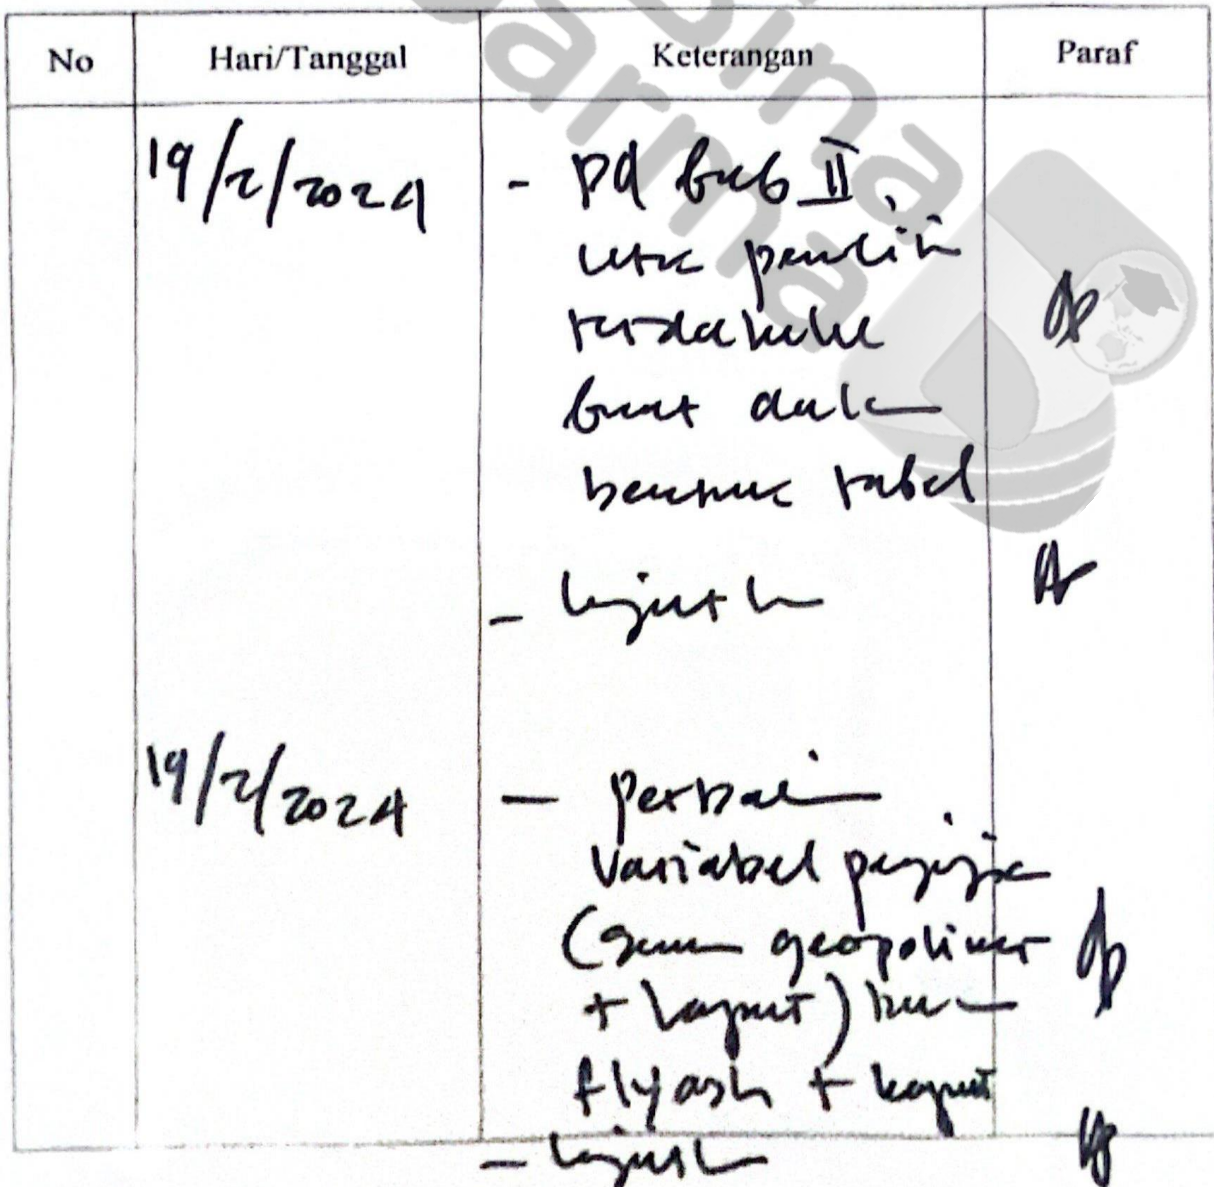 Bina
Darma
No Hari/Tanggal Keterangan Paraf
19/2/2024 - pd bab II,
utk peneliti
terdahulu
buat dalam
bentuk tabel
- lanjutkan
19/2/2024 - perbaiki
Variabel pengujian
(semen geopolimer
+ kapur) bukan
flyash + kapur
- lanjutkan